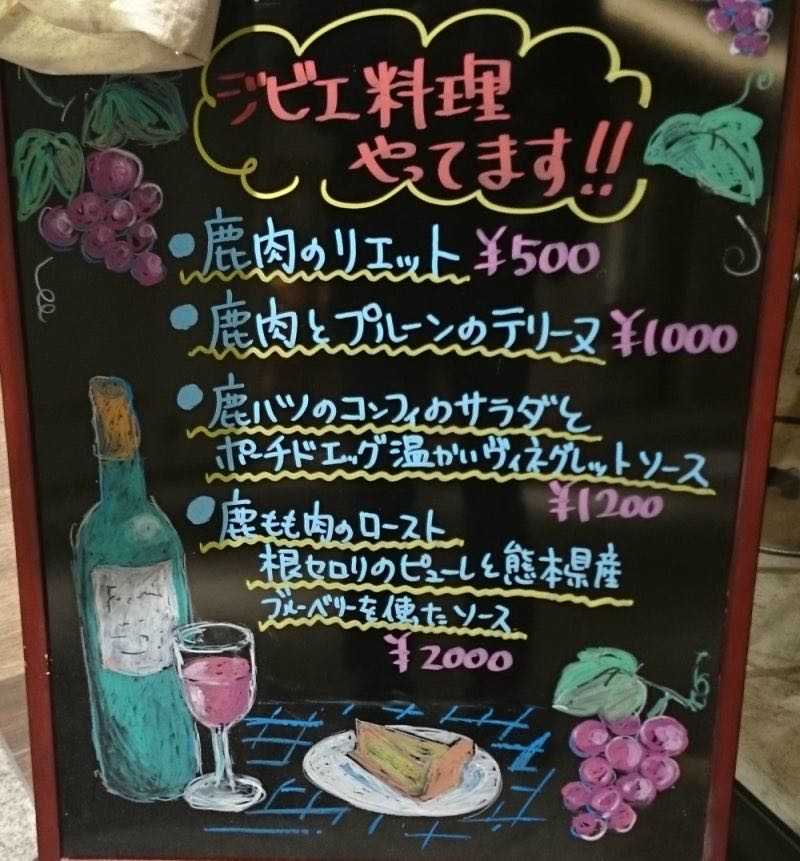 ジビエ料理
やってます!!
●鹿肉のリエット ¥500
●鹿肉とプルーンのテリーヌ ¥1000
●鹿ハツのコンフィのサラダと
ポーチドエッグ温かいヴィネグレットソース
¥1200
●鹿もも肉のロースト
根セロリのピューレと熊本県産
ブルーベリーを使ったソース
¥2000